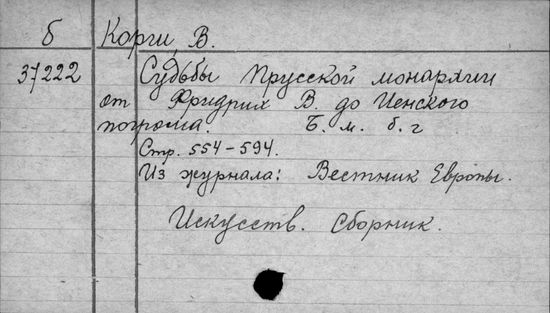 б Корги, В.
37222 Судьбы Прусской монархии
от Фридрих В. до Иенского
погрома. Б. м. б. г
Стр. 554-594.
Из журнала: Вестник Европы.
Искусств. Сборник.